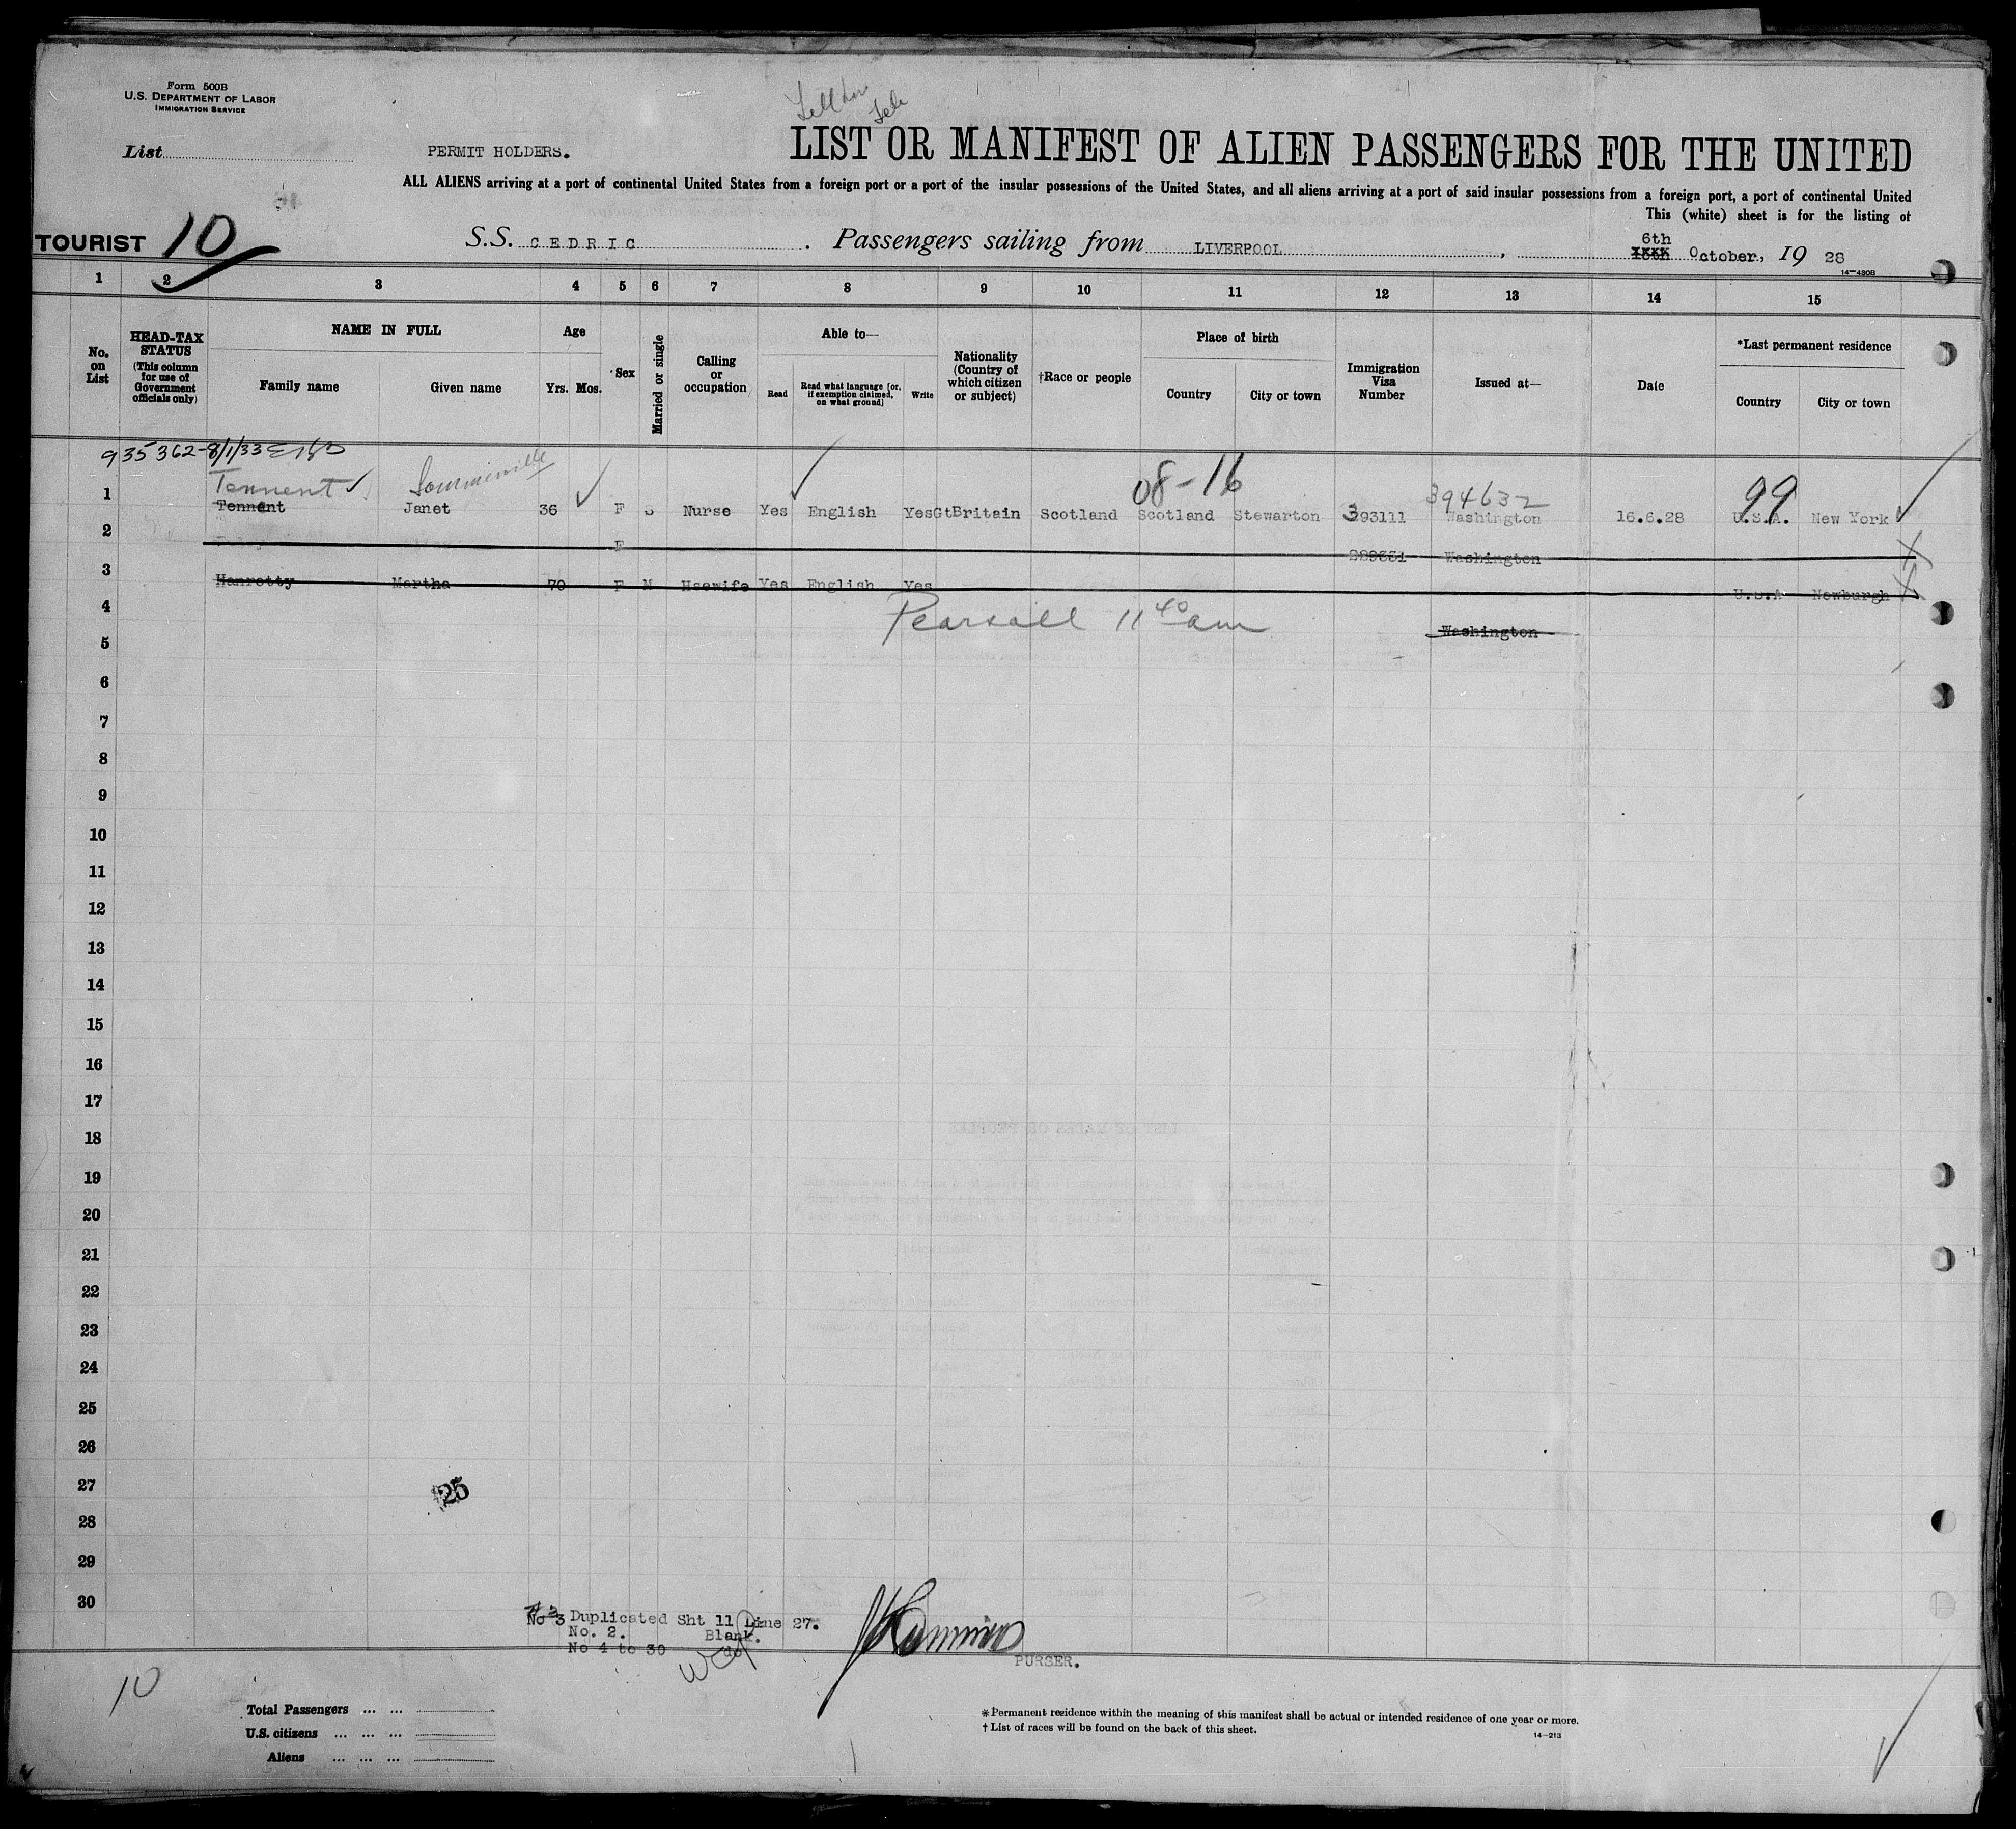 Form 500B
U.S. DEPARTMENT OF LABOR
IMMIGRATION SERVICE
List
PERMIT HOLDERS.
LIST OR MANIFEST OF ALIEN PASSENGERS FOR THE UNITED
ALL ALIENS arriving at a port of continental United States from a foreign port or a port of the insular possessions of the United States, and all aliens arriving at a port of said insular possessions from a foreign port, a port of continental United
This (white) sheet is for the listing of
TOURIST 10
S.S. CEDRIC. Passengers sailing from LIVERPOOL, 6th October, 19 28
14-430B
1 2 3 4 5 6 7 8 9 10 11 12 13 14 15
No. on List
HEAD-TAX STATUS
(This column for use of Government officials only)
NAME IN FULL
Family name Given name
Age
Yrs. Mos.
Sex
Married or single
Calling or occupation
Able to—
Read
Read what language [or, if exemption claimed, on what ground]
Write
Nationality (Country of which citizen or subject)
†Race or people
Place of birth
Country City or town
Immigration Visa Number
Issued at—
Date
*Last permanent residence
Country City or town
935362-8/1/33
Tennent Sommerville 08-16 394632 99
1 Tennant Janet 36 F S Nurse Yes English Yes GtBritain Scotland Scotland Stewarton 393111 Washington 16.6.28 U.S.A. New York
2 F Washington
3 Hanretty Martha 70 F M Hsewife Yes English Yes U.S.A Newburgh
4 Pearsall 11 40 am
Washington
5
6
7
8
9
10
11
12
13
14
15
16
17
18
19
20
21
22
23
24
25
26
27
25
28
29
30
No 3 Duplicated Sht 11 Line 27.
No. 2. Blank.
No 4 to 30 do
PURSER.
10
Total Passengers ... ...
U.S. citizens ... ... ...
Aliens ... ... ...
*Permanent residence within the meaning of this manifest shall be actual or intended residence of one year or more.
† List of races will be found on the back of this sheet.
14-213